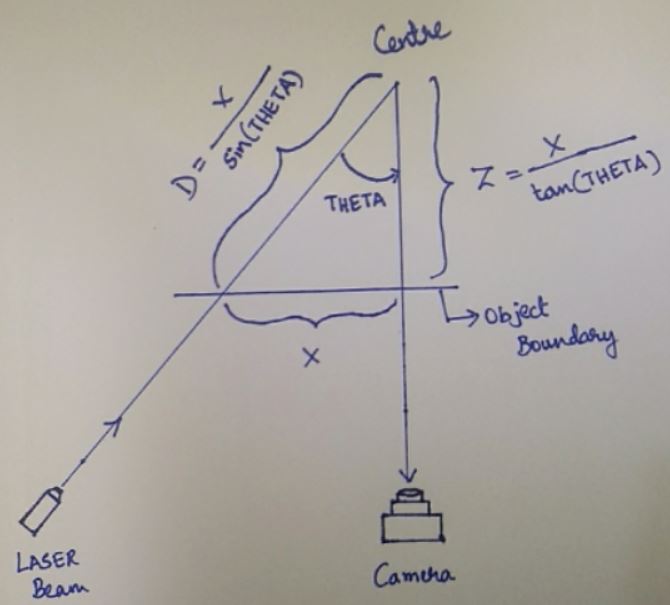 Centre
D = X / sin(THETA)
THETA
Z = X / tan(THETA)
X
Object
Boundary
LASER
Beam
Camera